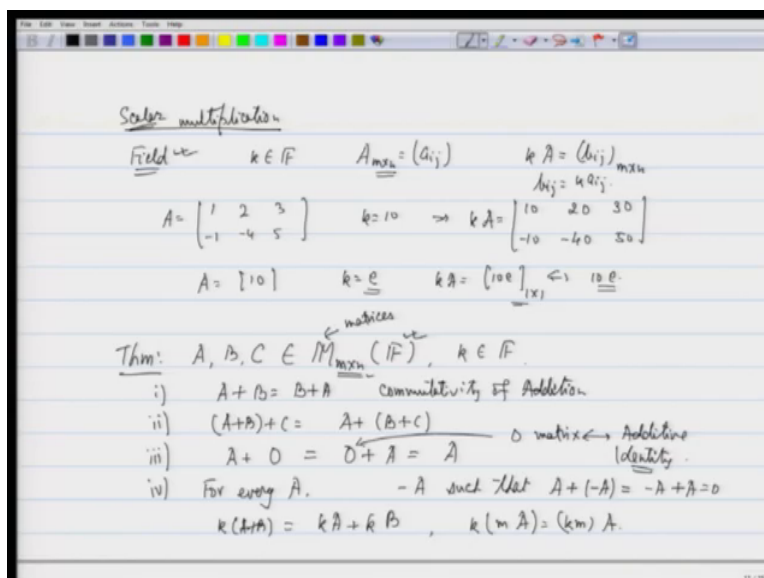 File Edit View Insert Actions Tools Help
Scalar multiplication
Field k ∈ F A_{m×n} = (a_{ij}) k A = (b_{ij})_{m×n}
b_{ij} = k a_{ij}.
A = [1 2 3; -1 -4 5] k = 10 → k A = [10 20 30; -10 -40 50]
A = [10] k = e k A = [10e]_{1×1} ↔ 10e.
← matrices
Thm: A, B, C ∈ M_{m×n}(F), k ∈ F.
i) A + B = B + A Commutativity of Addition
ii) (A+B)+C = A+(B+C)
iii) A + 0 = 0 + A = A 0 matrix ↔ Additive Identity.
iv) For every A. -A such that A + (-A) = -A + A = 0
k(A+B) = kA + kB , k(mA) = (km) A.